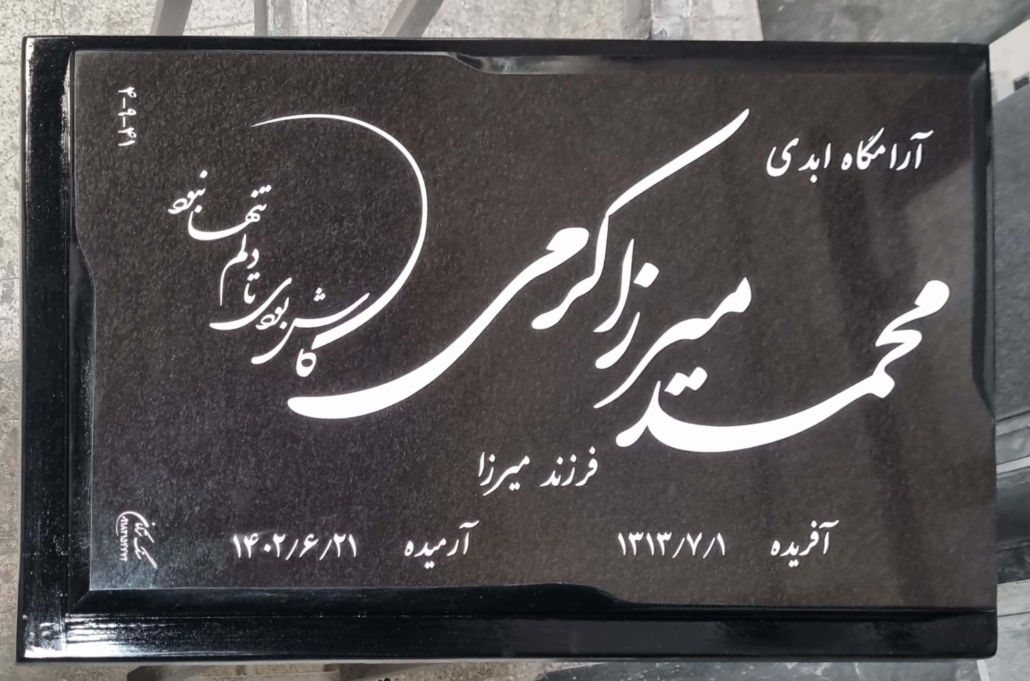 آرامگاه ابدی
محمد میرزا کرمی
کاش بودی تا دلم تنها نبود
فرزند میرزا
آفریده ۱۳۱۳/۷/۱
آرمیده ۱۴۰۲/۶/۲۱